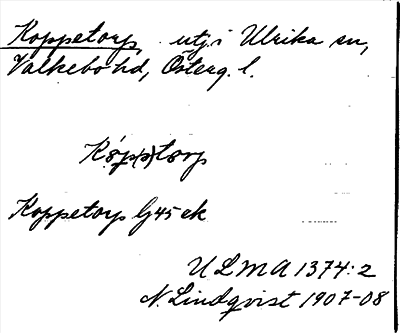 Koppetorp, utj. i Ulrika sn,
Valkebo hd, Österg. l.
Kǿp(p)tørp
Koppetorp Gj45 ek
ULMA 1374:2
N. Lindqvist 1907-08